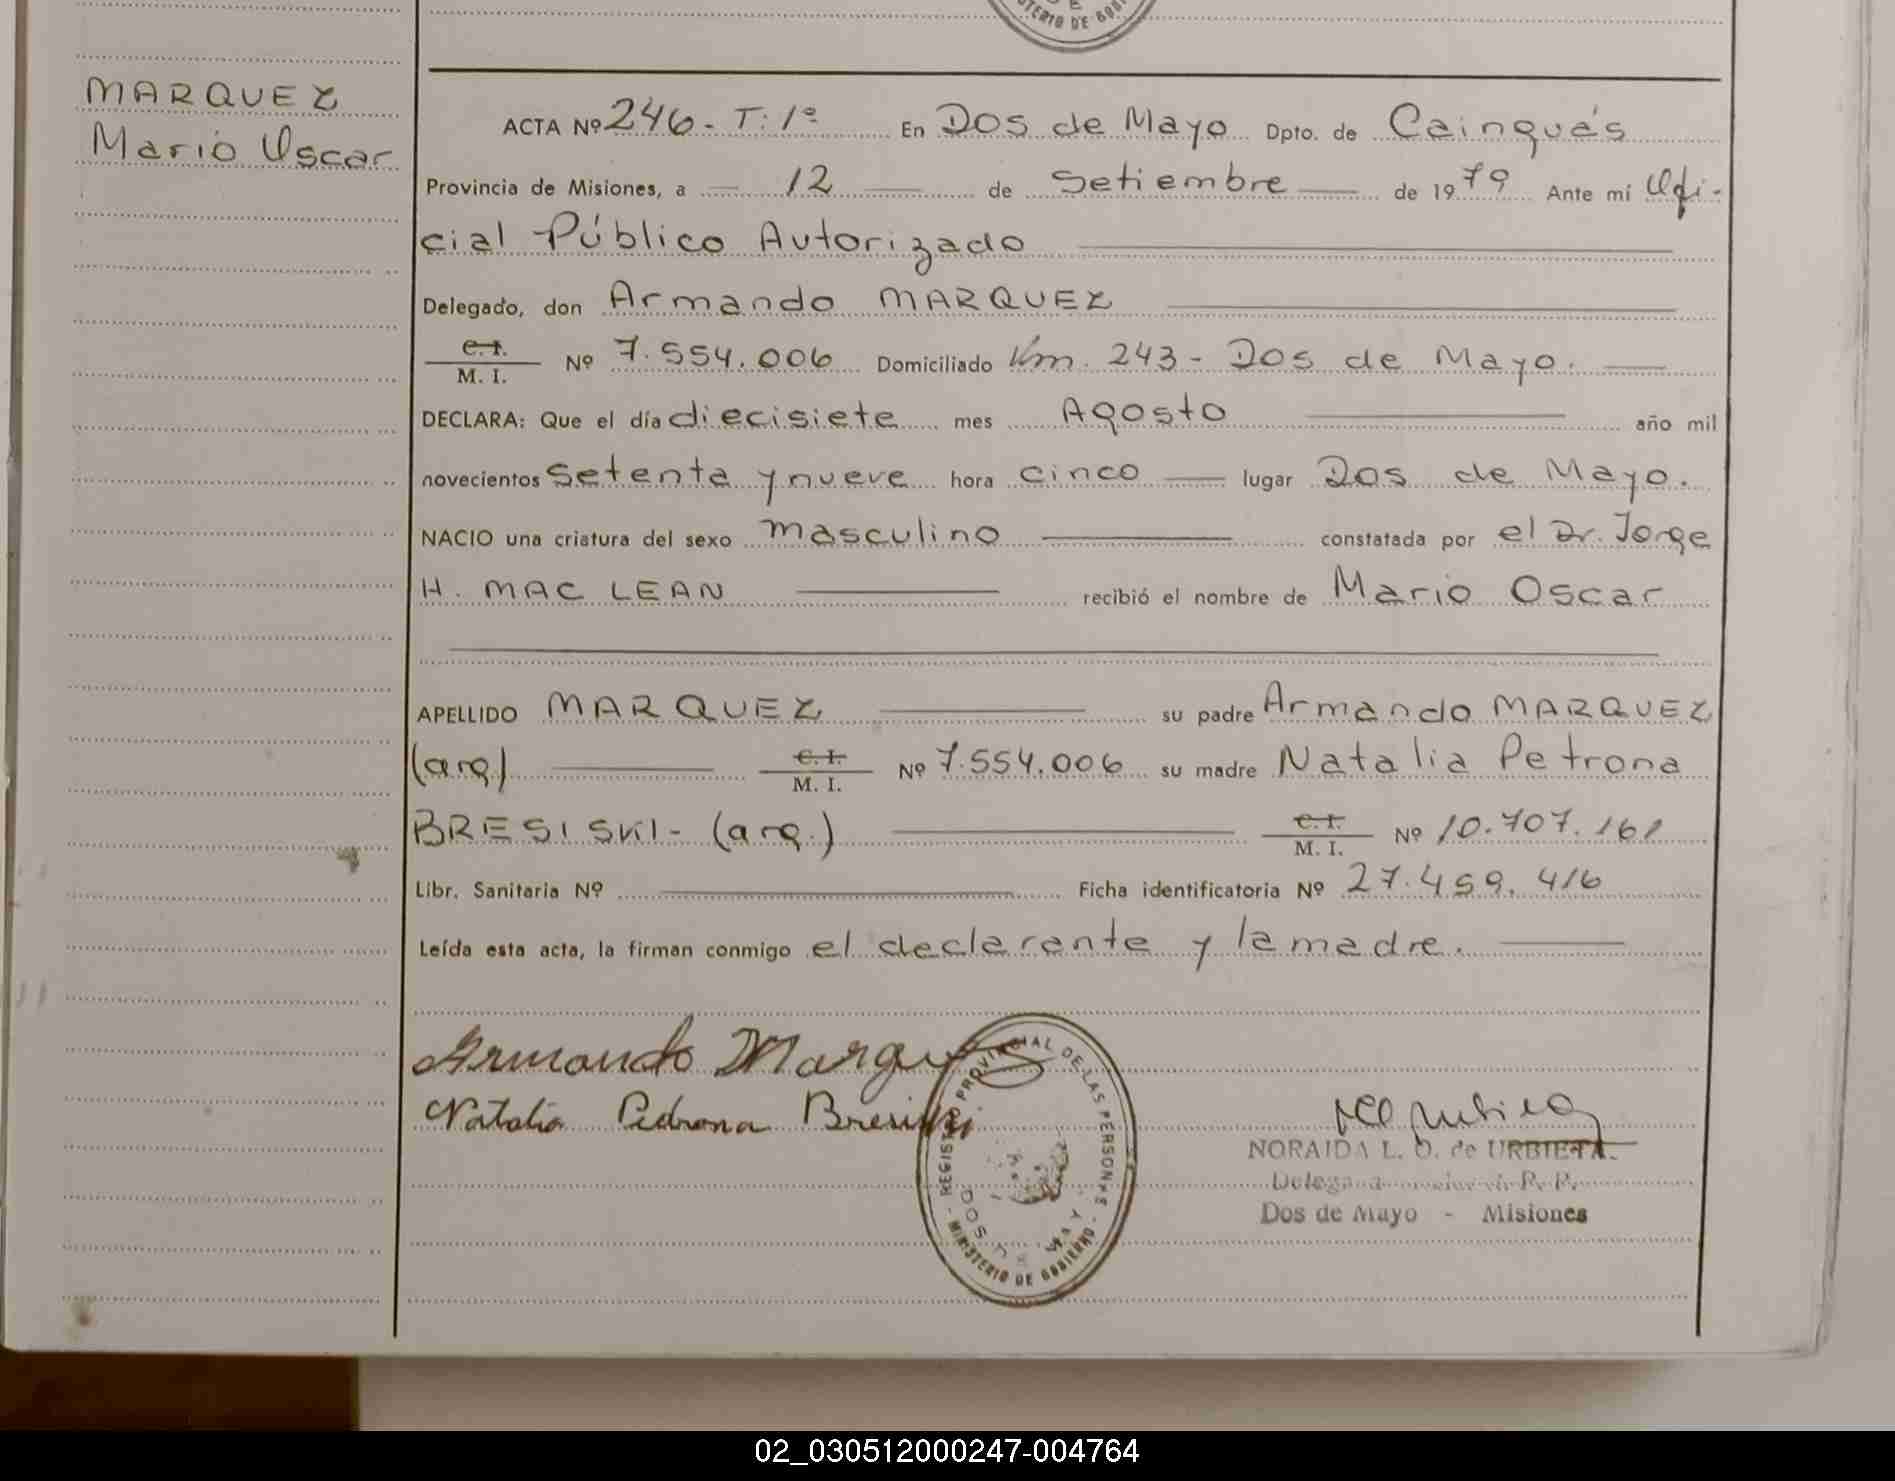 MINISTERIO DE GOBI
MARQUEZ
Mario Oscar
ACTA Nº 246- T: 1º En Dos de Mayo Dpto. de Cainguás
Provincia de Misiones, a 12 de Setiembre de 1979 Ante mí Ofi-
cial Público Autorizado
Delegado, don Armando MARQUEZ
C. I. / M. I. Nº 7.554.006 Domiciliado Km. 243 - Dos de Mayo.
DECLARA: Que el día diecisiete mes Agosto año mil
novecientos setenta y nueve hora cinco lugar Dos de Mayo.
NACIO una criatura del sexo masculino constatada por el Dr. Jorge
H. MAC LEAN recibió el nombre de Mario Oscar
APELLIDO MARQUEZ su padre Armando MARQUEZ
(arg) C. I. / M. I. Nº 7.554.006 su madre Natalia Petrona
BRESISKI- (arg.) C. I. / M. I. Nº 10.707.161
Libr. Sanitaria Nº Ficha identificatoria Nº 27.459.416
Leída esta acta, la firman conmigo el declarante y la madre.
Armando Marquez
Natalia Pedrona Bresiski
REGISTRO PROVINCIAL DE LAS PERSONAS
DOS DE MAYO
- MINISTERIO DE GOBIERNO -
NORAIDA L. O. de URBIETA
Delegada R. P.
Dos de Mayo - Misiones
02_030512000247-004764